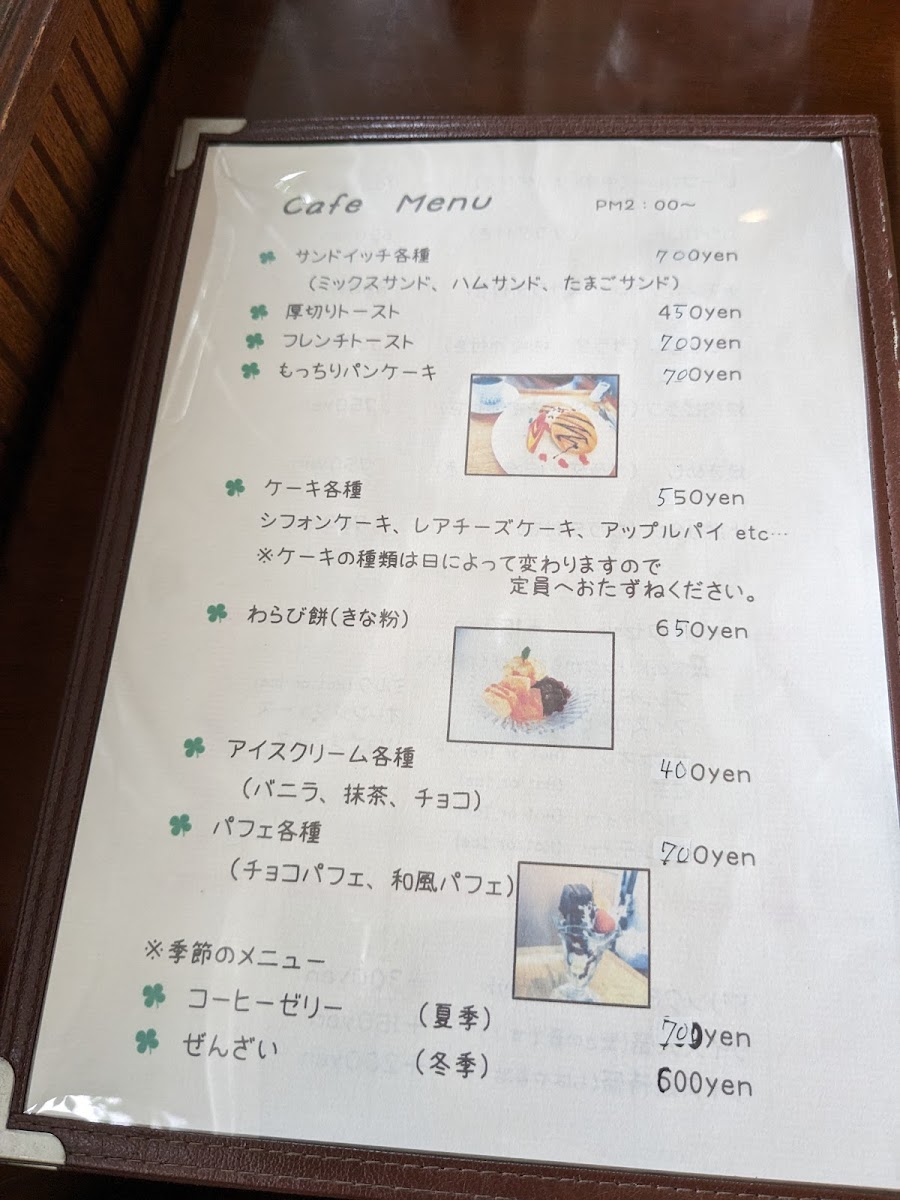 Cafe Menu PM2:00~
サンドイッチ各種 700yen
(ミックスサンド、ハムサンド、たまごサンド)
厚切りトースト 450yen
フレンチトースト 700yen
もっちりパンケーキ 700yen
ケーキ各種 550yen
シフォンケーキ、レアチーズケーキ、アップルパイ etc…
※ケーキの種類は日によって変わりますので
定員へおたずねください。
わらび餅(きな粉) 650yen
アイスクリーム各種 400yen
(バニラ、抹茶、チョコ)
パフェ各種 700yen
(チョコパフェ、和風パフェ)
※季節のメニュー
コーヒーゼリー (夏季) 700yen
ぜんざい (冬季) 600yen